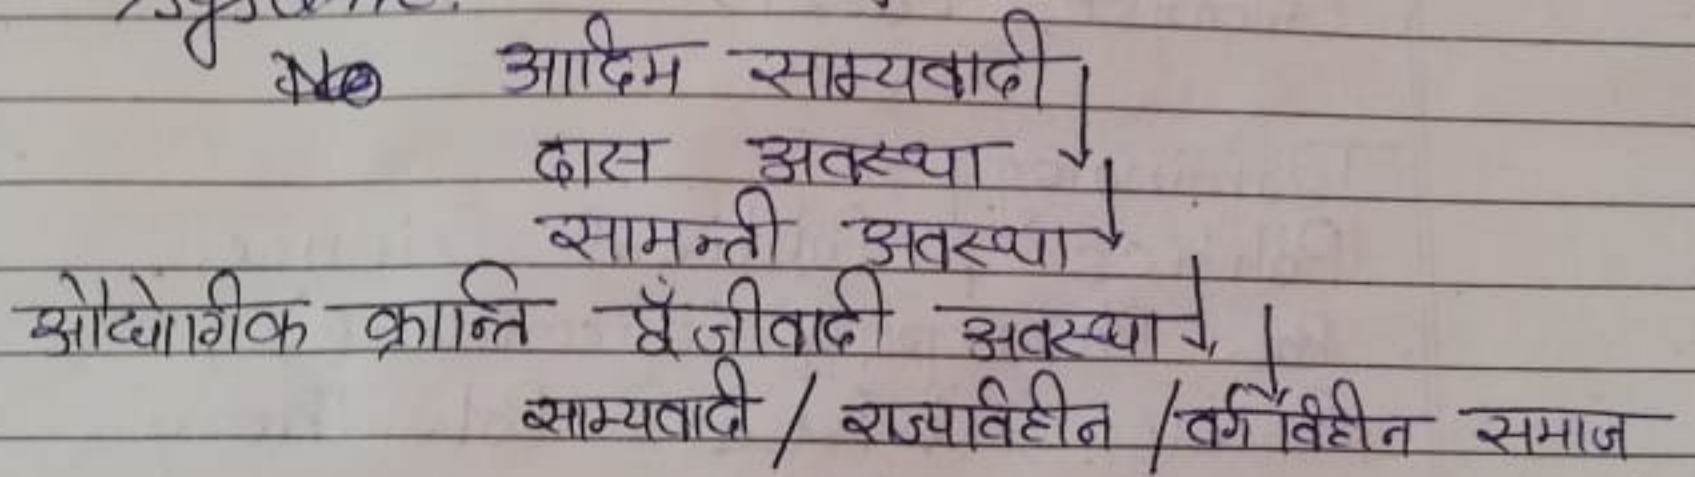 No आदिम साम्यवादी
दास अवस्था
सामन्ती अवस्था
औद्योगिक क्रान्ति पूँजीवादी अवस्था
साम्यवादी / राज्यविहीन / वर्गविहीन समाज